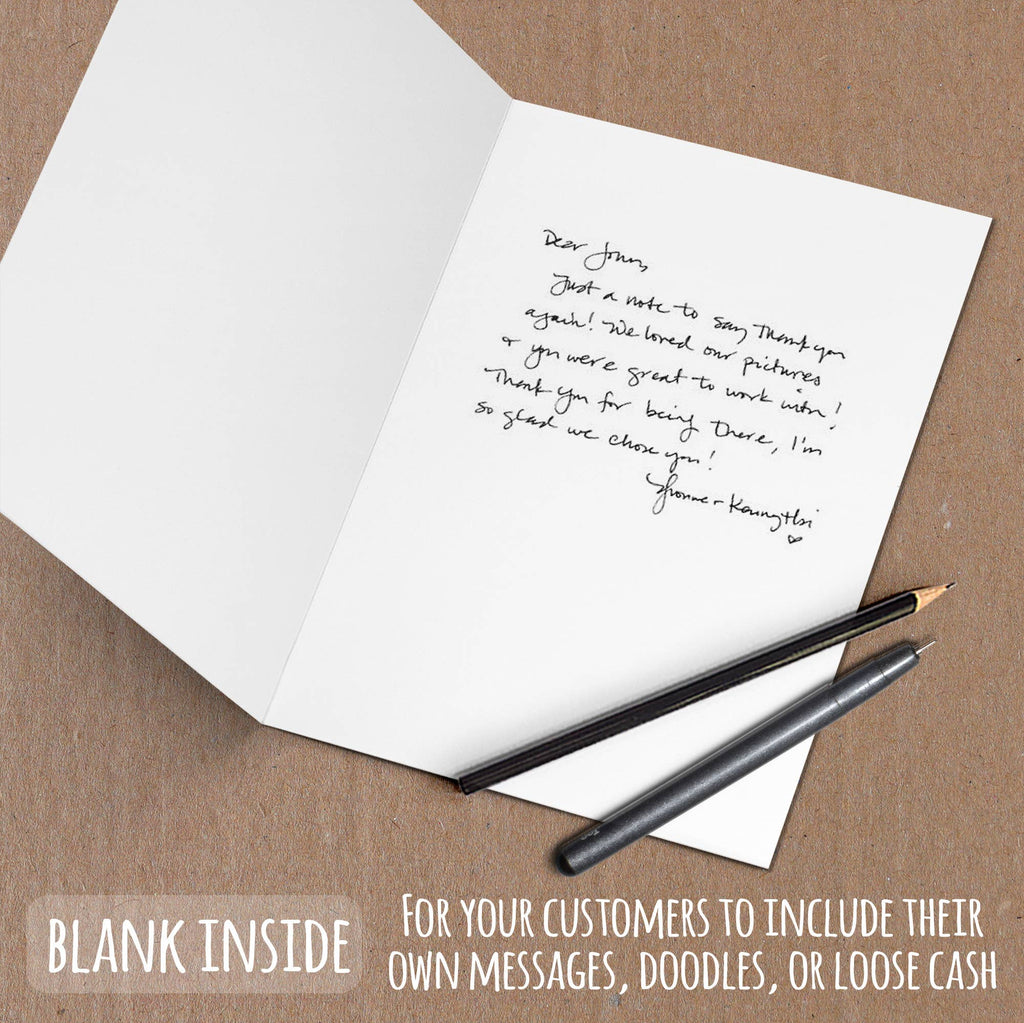 Dear
Just a note to say Thank you
again! We loved our pictures
& you were great to work with!
Thank you for being there, I'm
so glad we chose you!
Yvonne +
BLANK INSIDE
FOR YOUR CUSTOMERS TO INCLUDE THEIR
OWN MESSAGES, DOODLES, OR LOOSE CASH